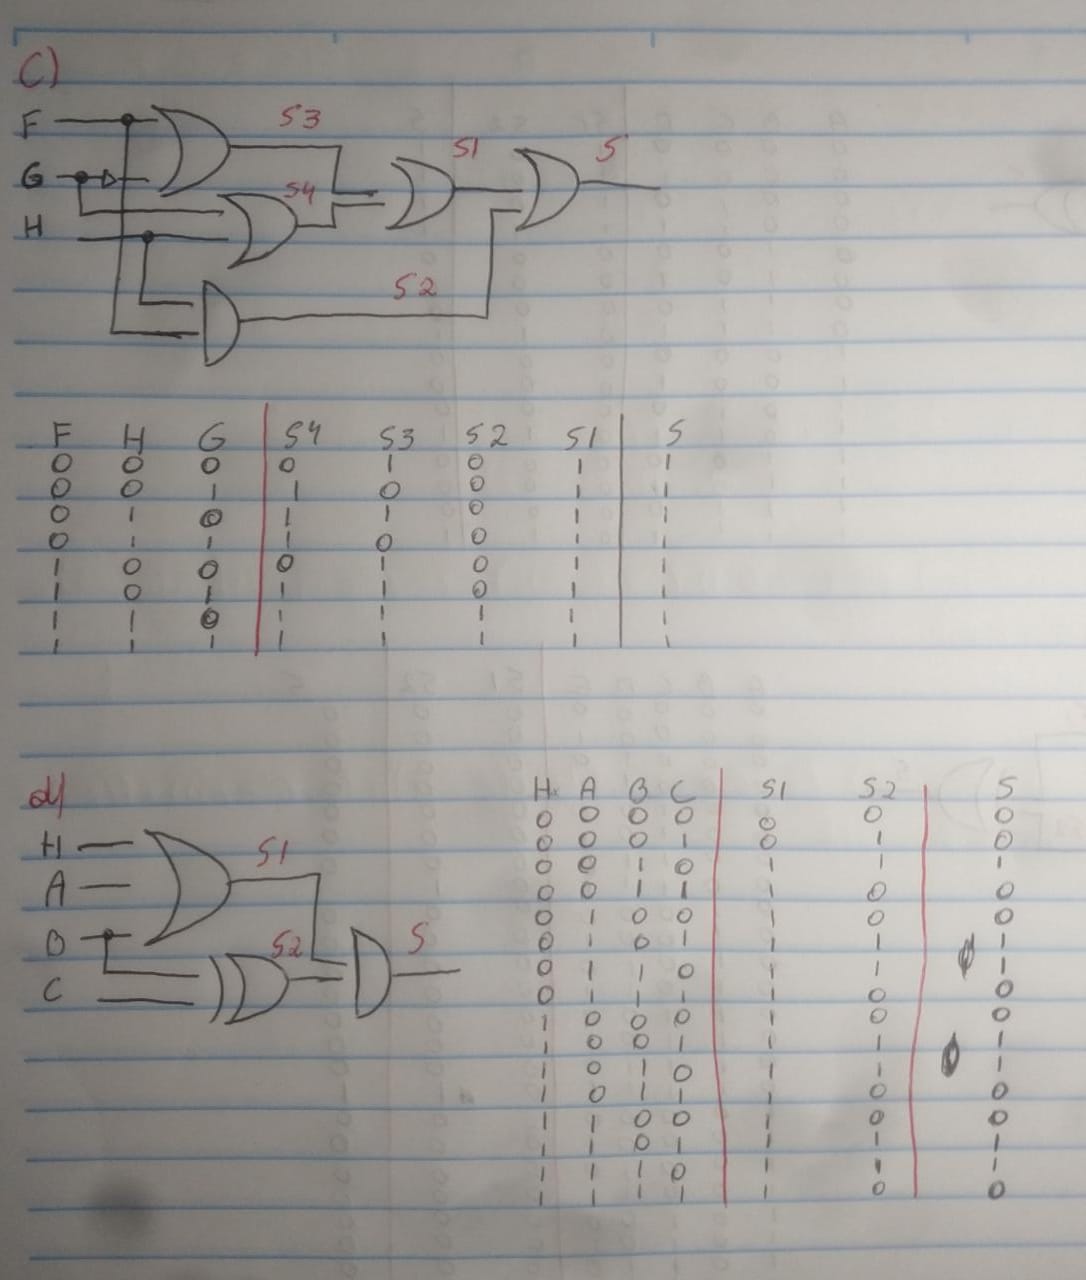 C)
F S3
S1 S
G S4
H
S2
F H G S4 S3 S2 S1 S
0 0 0 0 1 0 1 1
0 0 1 1 0 0 1 1
0 1 0 1 1 0 1 1
0 1 1 1 0 0 1 1
1 0 0 0 1 0 1 1
1 0 1 1 1 0 1 1
1 1 0 1 1 1 1 1
1 1 1 1 1 1 1 1
d)
H S1
A
B S2 S
C
H A B C S1 S2 S
0 0 0 0 0 0 0
0 0 0 1 0 1 0
0 0 1 0 1 1 1
0 0 1 1 1 0 0
0 1 0 0 1 0 0
0 1 0 1 1 1 1
0 1 1 0 1 1 1
0 1 1 1 1 0 0
1 0 0 0 1 0 0
1 0 0 1 1 1 1
1 0 1 0 1 1 1
1 0 1 1 1 0 0
1 1 0 0 1 0 0
1 1 0 1 1 1 1
1 1 1 0 1 1 1
1 1 1 1 1 0 0